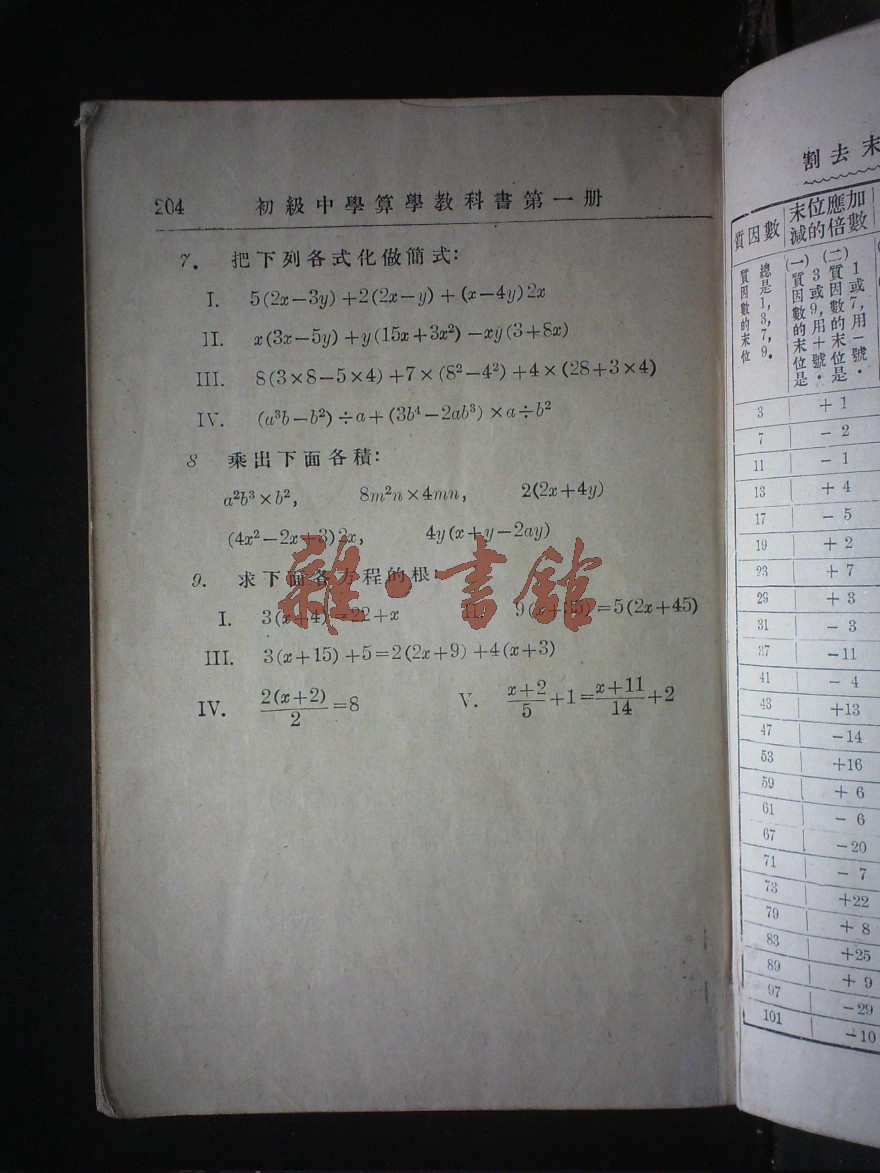 204 初級中學算學教科書第一册
7. 把下列各式化做簡式:
I. 5(2x−3y)+2(2x−y)+(x−4y)2x
II. x(3x−5y)+y(15x+3x²)−xy(3+8x)
III. 8(3×8−5×4)+7×(8²−4²)+4×(28+3×4)
IV. (a³b−b²)÷a+(3b⁴−2ab³)×a÷b²
8 乘出下面各積:
a²b³×b², 8m²n×4mn, 2(2x+4y)
(4x²−2x+3)2x, 4y(x+y−2ay)
9. 求下面各方程的根:
I. 3(x+4)=22+x II. 9(x+35)=5(2x+45)
III. 3(x+15)+5=2(2x+9)+4(x+3)
IV. 2(x+2)/2=8 V. x+2/5+1=x+11/14+2
雜·書館
割去末
質因數 末位應加減的倍數
質因數的末位總是1,3,7,9。
(一)質因數的末位是3或9,用+號。
(二)質因數的末位是1或7,用−號。
3 +1
7 −2
11 −1
13 +4
17 −5
19 +2
23 +7
29 +3
31 −3
37 −11
41 −4
43 +13
47 −14
53 +16
59 +6
61 −6
67 −20
71 −7
73 +22
79 +8
83 +25
89 +9
97 −29
101 −10